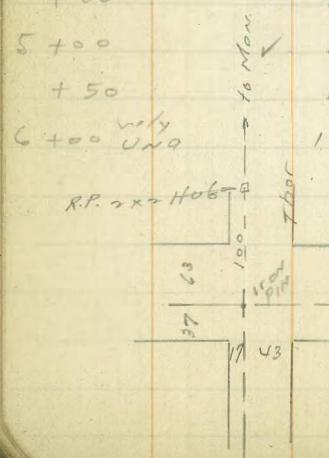 5 +00
+ 50
6 +00
to Mon.
R.P. 2x2 HUB
Thor
100
63
iron pin
37
17
43